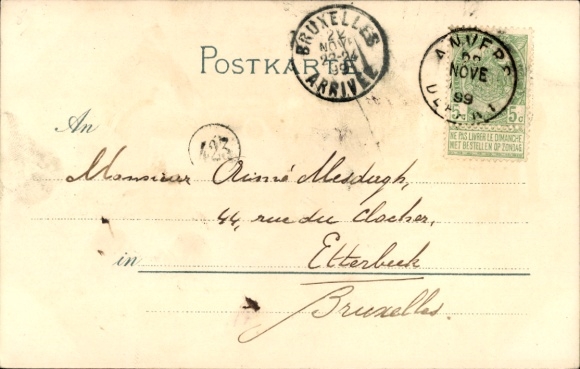 BRUXELLES
22
NOVE
22-24
99
ARRIVÉE
POSTKARTE
ANVERS
22
NOVE
99
DÉPART
5c 5c
NE PAS LIVRER LE DIMANCHE
NIET BESTELLEN OP ZONDAG
An
423
Monsieur Aimé Mesdagh,
44, rue du Clocher,
in Etterbeek
Bruxelles.